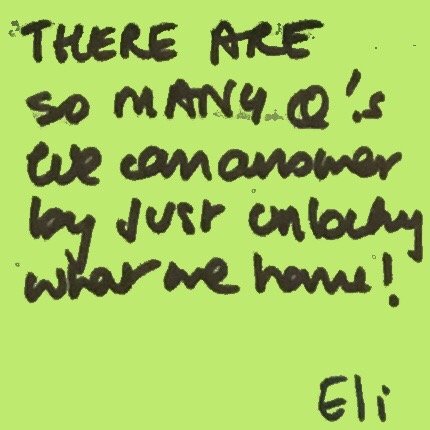 THERE ARE
SO MANY Q's
we can answer
by just unlocky
what we have!
Eli